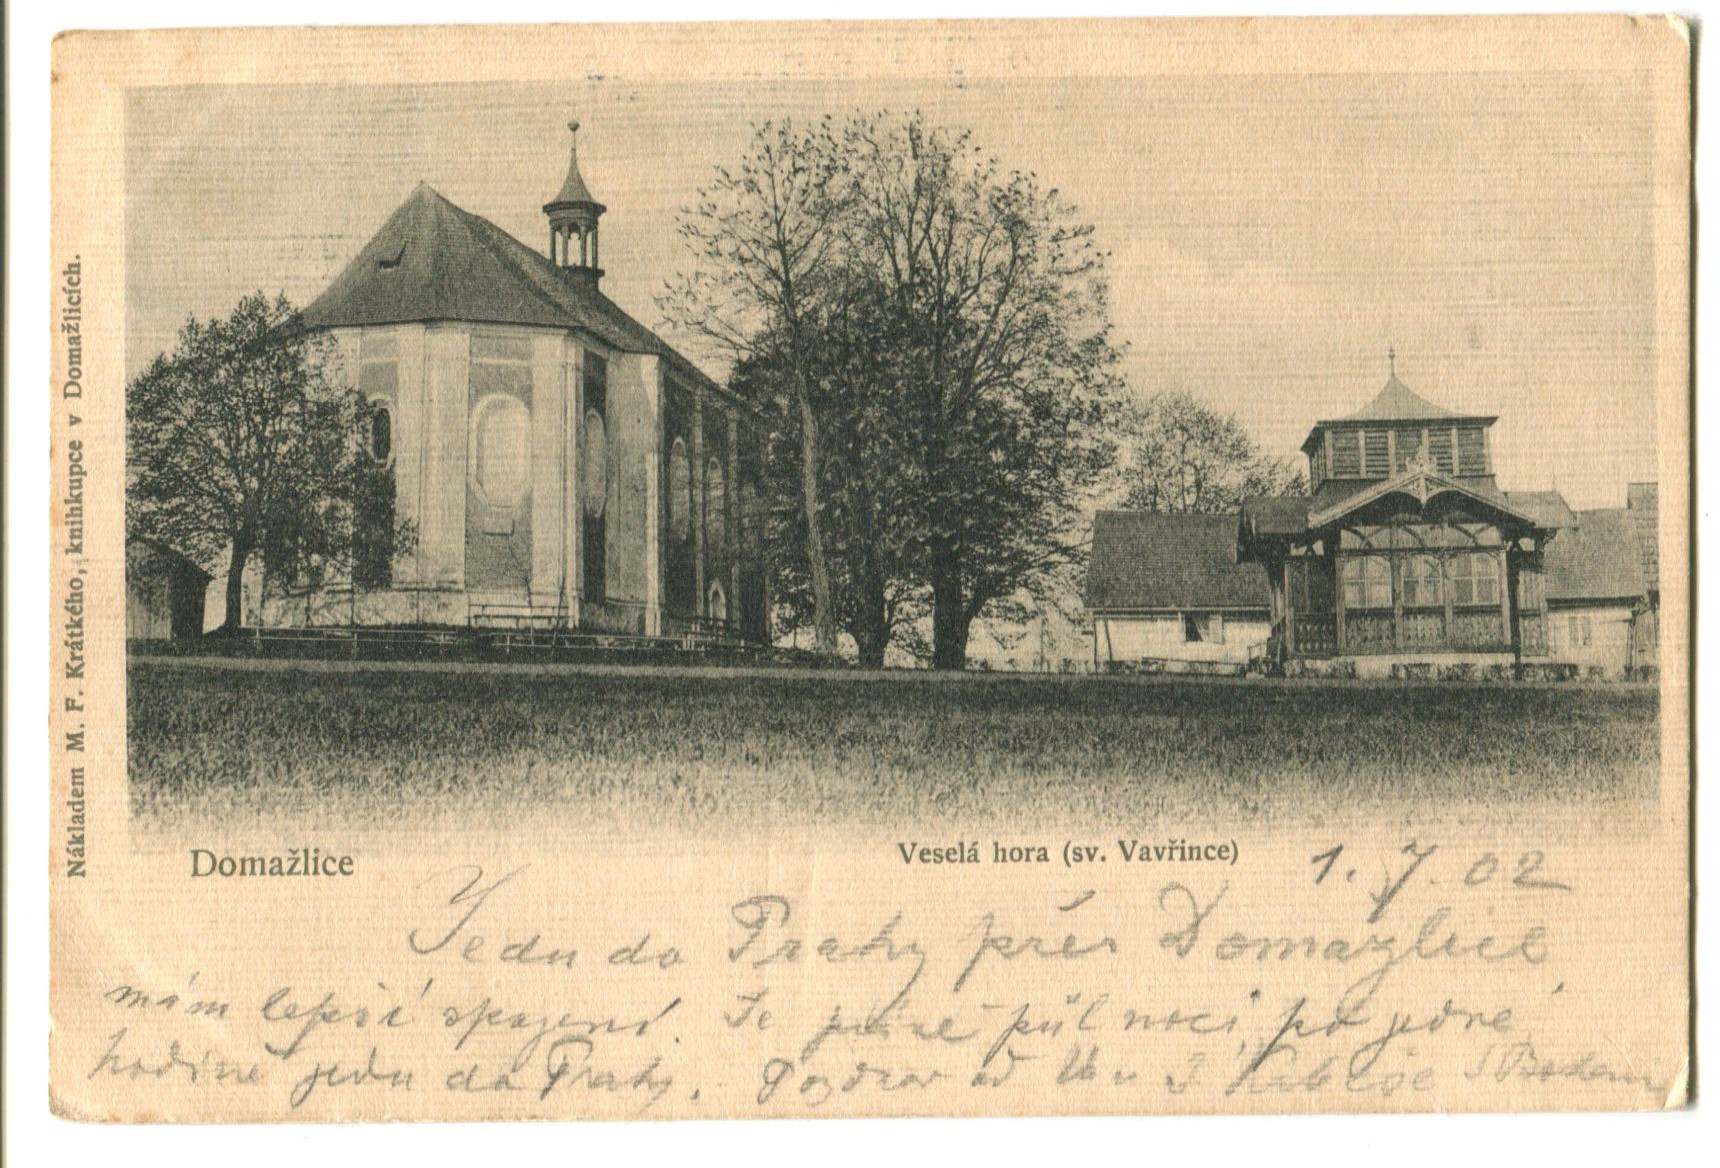 Nákladem M. F. Krátkého, knihkupce v Domažlicích.
Domažlice
Veselá hora (sv. Vavřince)
1. 7. 02
Jedu do Prahy přes Domažlice
mám lepší spojení. Je právě půl noci, po jedné
hodině jedu do Prahy. Pozdrav od